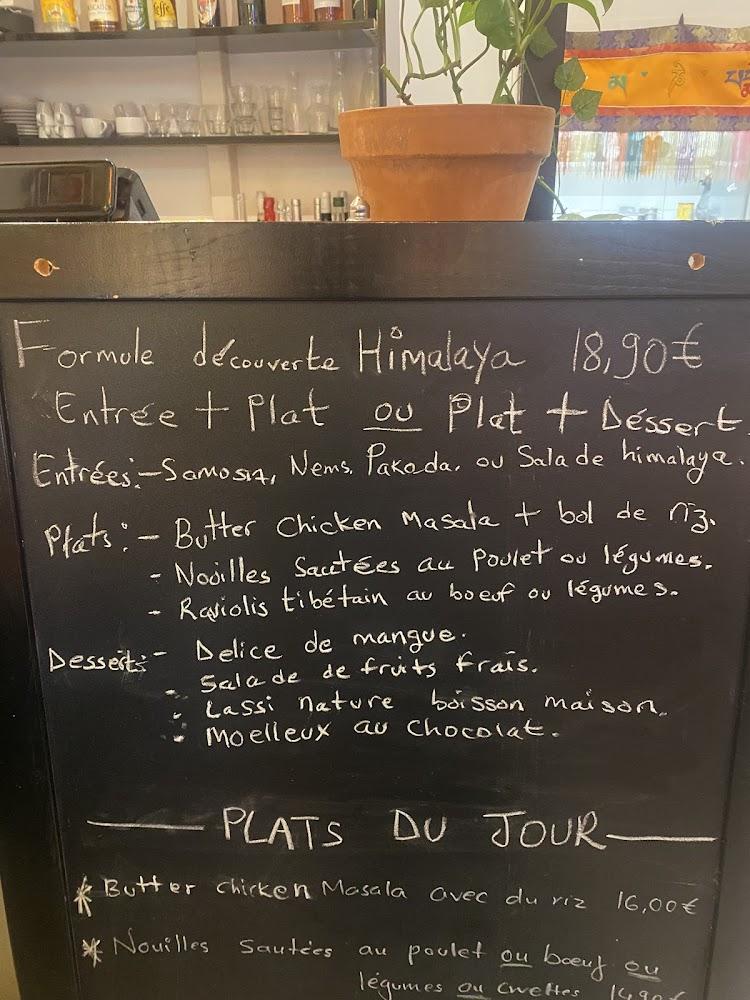 Leffe
Formule découverte Himalaya 18,90€
Entrée + Plat ou Plat + Déssert.
Entrées:-Samosa, Nems, Pakoda, ou Salade himalaya.
Plats:- Butter Chicken Masala + bol de riz.
- Nouilles Sautées au Poulet ou légumes.
- Raviolis tibétain au boeuf ou légumes.
Desserts:- Delice de mangue.
- Salade de fruits frais.
- Lassi nature boisson maison.
- Moelleux au Chocolat.
PLATS DU JOUR
* Butter chicken Masala avec du riz 16,00€
* Nouilles sautées au poulet ou bœuf ou
légumes ou crvettes 14,90€